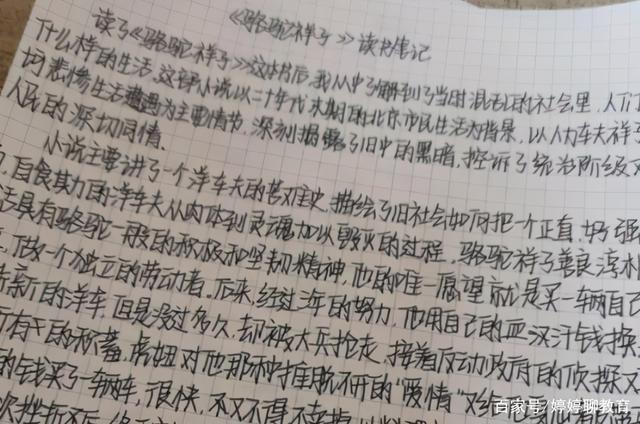 《骆驼祥子》读书笔记
读了《骆驼祥子》这本书后,我从中了解到了当时混乱的社会里,人们
什么样的生活,这部小说以二十年代末期的北京市民生活为背景,以人力车夫祥子
坷悲惨生活遭遇为主要情节,深刻揭露了旧中的黑暗,控诉了统治阶级对
人民的深切同情.
小说主要讲了一个洋车夫的苦难史,描绘了旧社会如何把一个正直、好强
自食其力的洋车夫从肉体到灵魂加以毁灭的过程,骆驼祥子善良淳朴
具有骆驼一般的积极和坚韧精神,他的唯一愿望就是买一辆自己
做一个独立的劳动者.后来,经过三年的努力,他用自己的血汉汗钱换
新的洋车,但是没过多久,却被大兵抢走,接着反动政府的侦探又
所有的积蓄,虎妞对他那种推脱不开的“爱情”又给
的钱买了一辆车,很快,不又不得不卖掉
次挫折后
百家号/婷婷聊教育